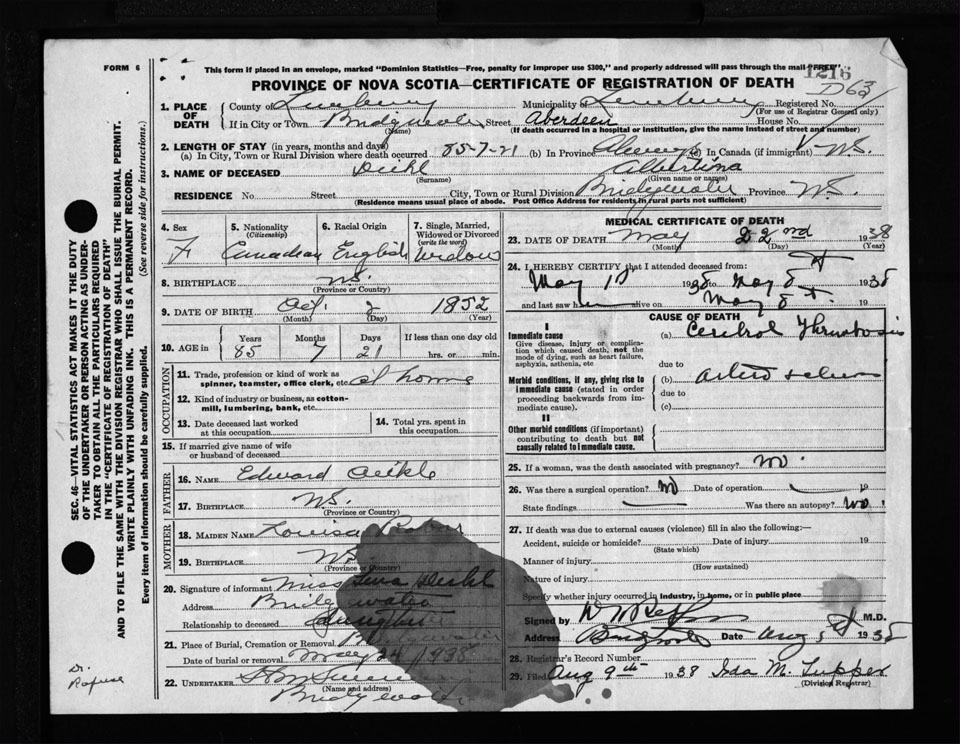 FORM 6
This form if placed in an envelope, marked "Dominion Statistics—Free, penalty for improper use $300," and properly addressed will pass through the mail "FREE"
1216
D 63
PROVINCE OF NOVA SCOTIA—CERTIFICATE OF REGISTRATION OF DEATH
1. PLACE OF DEATH
County of Lunenburg Municipality of Lunenburg Registered No.
(For use of Registrar General only)
If in City or Town Bridgewater Street Aberdeen House No.
(Name) (If death occurred in a hospital or institution, give the name instead of street and number)
2. LENGTH OF STAY (in years, months and days)
(a) In City, Town or Rural Division where death occurred 85-7-21 (b) In Province Always (c) In Canada (if immigrant) N.S.
3. NAME OF DECEASED Deihl
(Surname) (Given name or names)
RESIDENCE No. Street City, Town or Rural Division Bridgewater Province N.S.
(Residence means usual place of abode. Post Office Address for residents in rural parts not sufficient)
4. Sex F
5. Nationality (Citizenship) Canadian
6. Racial Origin English
7. Single, Married, Widowed or Divorced (write the word) Widow
8. BIRTHPLACE N.S.
(Province or Country)
9. DATE OF BIRTH Oct. 2 1852
(Month) (Day) (Year)
10. AGE in Years Months Days If less than one day old
85 7 21 hrs. or min.
OCCUPATION
11. Trade, profession or kind of work as spinner, teamster, office clerk, etc. at home
12. Kind of industry or business, as cotton-mill, lumbering, bank, etc.
13. Date deceased last worked at this occupation
14. Total yrs. spent in this occupation
15. If married give name of wife or husband of deceased
FATHER
16. NAME Edward
17. BIRTHPLACE N.S.
(Province or Country)
MOTHER
18. MAIDEN NAME Louisa
19. BIRTHPLACE N.S.
(Province or Country)
20. Signature of informant Miss Deihl
Address Bridgewater
Relationship to deceased daughter
21. Place of Burial, Cremation or Removal Bridgewater
Date of burial or removal May 24 1938
22. UNDERTAKER
(Name and address) Bridgewater
MEDICAL CERTIFICATE OF DEATH
23. DATE OF DEATH May 22nd 1938
(Month) (Day) (Year)
24. I HEREBY CERTIFY that I attended deceased from:
May 1938 to May 8th 1938
and last saw h alive on May 8th 19
CAUSE OF DEATH
I
Immediate cause
Give disease, injury or complication which caused death, not the mode of dying, such as heart failure, asphyxia, asthenia, etc
(a) Cerebral Thrombosis
due to
Morbid conditions, if any, giving rise to immediate cause (stated in order proceeding backwards from immediate cause).
(b) Arterio
due to
(c)
II
Other morbid conditions (if important) contributing to death but not causally related to immediate cause.
25. If a woman, was the death associated with pregnancy? no
26. Was there a surgical operation? no Date of operation 19
State findings Was there an autopsy? no
27. If death was due to external causes (violence) fill in also the following:—
Accident, suicide or homicide? Date of injury 19
(State which)
Manner of injury
(How sustained)
Nature of injury
Specify whether injury occurred in industry, in home, or in public place
Signed by M.D.
Address Bridgewater Date Aug 1938
28. Registrar's Record Number
29. Filed Aug 9th 1938 Ida M. Tupper
(Division Registrar)
SEC. 46—VITAL STATISTICS ACT MAKES IT THE DUTY
OF THE UNDERTAKER OR PERSON ACTING AS UNDER-
TAKER TO OBTAIN ALL THE PARTICULARS REQUIRED
IN THE "CERTIFICATE OF REGISTRATION OF DEATH"
AND TO FILE THE SAME WITH THE DIVISION REGISTRAR WHO SHALL ISSUE THE BURIAL PERMIT.
WRITE PLAINLY WITH UNFADING INK. THIS IS A PERMANENT RECORD.
Every item of information should be carefully supplied. (See reverse side for instructions.)
Dr.
Rafuse